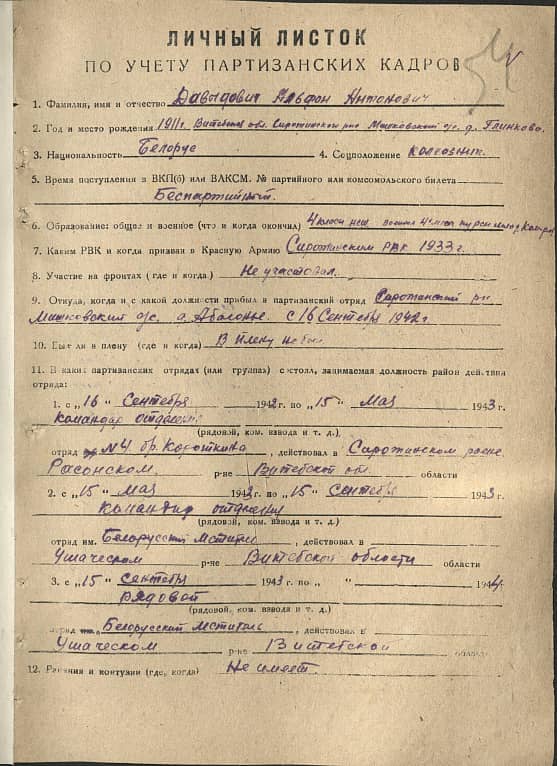 ЛИЧНЫЙ ЛИСТОК
ПО УЧЕТУ ПАРТИЗАНСКИХ КАДРОВ
1. Фамилия, имя и отчество Давыдович Альфон Антонович
2. Год и место рождения 1911г. Витебская обл. Сиротинский р-н Мишковский с/с. д. Глинково.
3. Национальность Белорус 4. Соцположение колхозник.
5. Время поступления в ВКП(б) или ВЛКСМ. № партийного или комсомольского билета
Беспартийный.
6. Образование: общее и военное (что и когда окончил) 4 класса
7. Каким РВК и когда призван в Красную Армию Сиротинским РВК 1933 г.
8. Участие на фронтах (где и когда) Не участвовал.
9. Откуда, когда и с какой должности прибыл в партизанский отряд Сиротинский р-н
Мишковский с/с. д. Аболонье. с 16 Сентября 1942 г
10. Был ли в плену (где и когда) В плену не был
11. В каких партизанских отрядах (или группах) состоял, занимаемая должность район действия
отряда:
1. с „16" Сентября 1942 г. по „15" Мая 1943 г.
командир отделения
(рядовой, ком. взвода и т. д.)
отряд №4 бр. Короткина, действовал в Сиротинском р-оне
Расонском. р-не Витебской обл. области
2. с „15" Мая 1943 г. по „15" Сентября 1943 г.
Командир отделения
(рядовой, ком. взвода и т. д.)
отряд им. Белорусский Мститель, действовал в
Ушаческом р-не Витебской области области
3. с „15" Сентября 1943 г. по „ " 1944 г.
Рядовой
(рядовой, ком. взвода и т. д.)
отряд Белорусский Мститель, действовал в
Ушаческом р-не Витебской области
12. Ранения и контузии (где, когда) Не имеет.